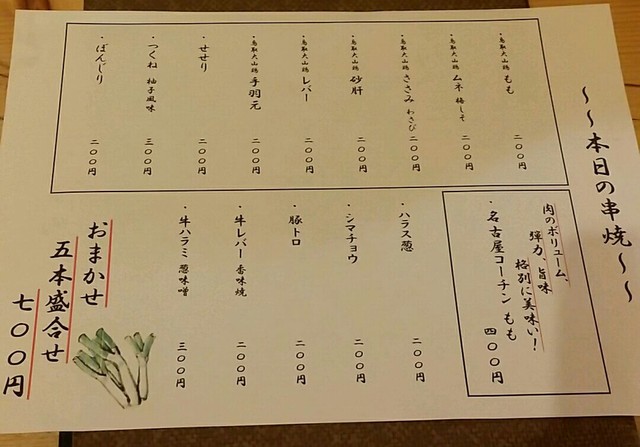 ～～本日の串焼～～
・鳥取大山鶏 もも 二〇〇円
・鳥取大山鶏 ムネ 梅しそ 二〇〇円
・鳥取大山鶏 ささみ わさび 二〇〇円
・鳥取大山鶏 砂肝 二〇〇円
・鳥取大山鶏 レバー 二〇〇円
・鳥取大山鶏 手羽元 二〇〇円
・せせり 二〇〇円
・つくね 柚子風味 三〇〇円
・ぼんじり 二〇〇円
肉のボリューム、
弾力、旨味
格別に美味い！
・名古屋コーチン もも 四〇〇円
・ハラス葱 二〇〇円
・シマチョウ 二〇〇円
・豚トロ 二〇〇円
・牛レバー 香味焼 二〇〇円
・牛ハラミ 葱味噌 三〇〇円
おまかせ
五本盛合せ
七〇〇円